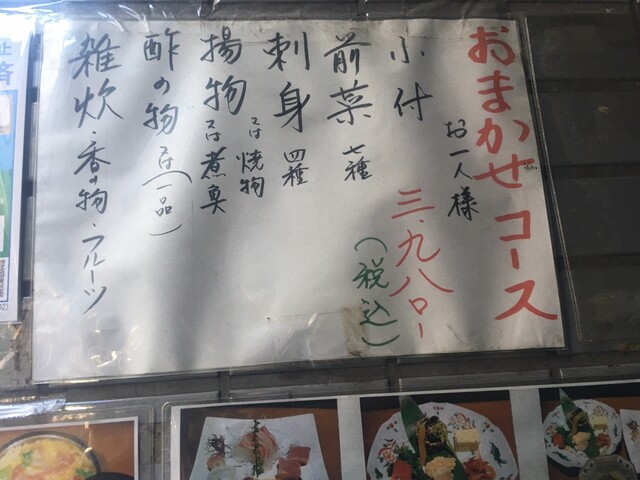 おまかせコース
お一人様
三.九八〇ー
(税込)
小付
前菜 七種
刺身 四種
揚物又は煮魚
又は焼物
酢の物又は(一品)
雑炊・香の物・フルーツ